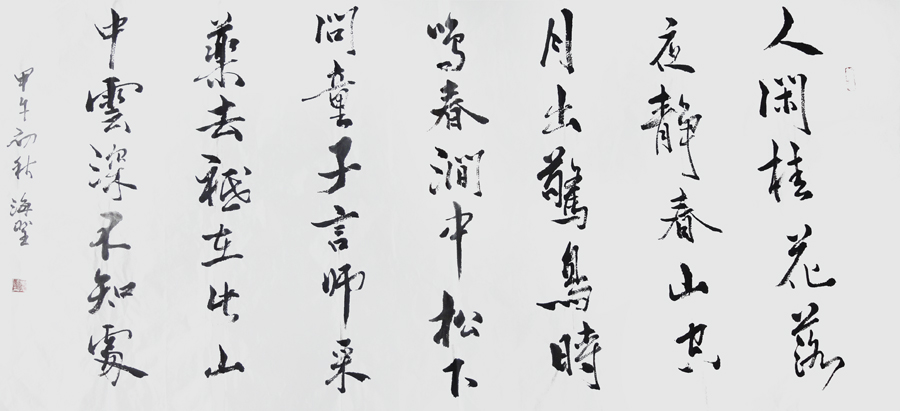 人閑桂花落
夜靜春山空
月出驚鳥時
鳴春澗中松下
問童子言師采
藥去祗在此山
中雲深不知處
甲午初秋海